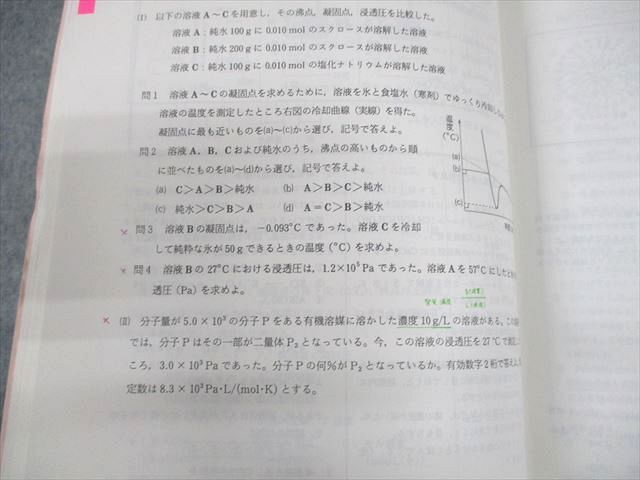 (I) 以下の溶液 A～C を用意し，その沸点，凝固点，浸透圧を比較した。
溶液 A：純水 100 g に 0.010 mol のスクロースが溶解した溶液
溶液 B：純水 200 g に 0.010 mol のスクロースが溶解した溶液
溶液 C：純水 100 g に 0.010 mol の塩化ナトリウムが溶解した溶液
問1 溶液 A～C の凝固点を求めるために，溶液を氷と食塩水（寒剤）でゆっくり冷却し
溶液の温度を測定したところ右図の冷却曲線（実線）を得た。
凝固点に最も近いものを(a)～(c)から選び，記号で答えよ。
問2 溶液 A，B，C および純水のうち，沸点の高いものから順
に並べたものを(a)～(d)から選び，記号で答えよ。
(a) C＞A＞B＞純水 (b) A＞B＞C＞純水
(c) 純水＞C＞B＞A (d) A＝C＞B＞純水
温度
(℃)
(a)
(b)
(c)
× 問3 溶液 B の凝固点は，－0.093℃ であった。溶液 C を冷却
して純粋な氷が 50 g できるときの温度（℃）を求めよ。
× 問4 溶液 B の 27℃ における浸透圧は，1.2×10⁵ Pa であった。溶液 A を 57℃ にしたとき
透圧（Pa）を求めよ。
× (II) 分子量が 5.0 × 10³ の分子 P をある有機溶媒に溶かした濃度 10 g/L の溶液がある。この
では，分子 P はその一部が二量体 P₂ となっている。今，この溶液の浸透圧を 27 ℃ で測定し
ころ，3.0 × 10³ Pa であった。分子 P の何％が P₂ となっているか。有効数字 2 桁で答えよ
定数は 8.3 × 10³ Pa・L/(mol・K) とする。